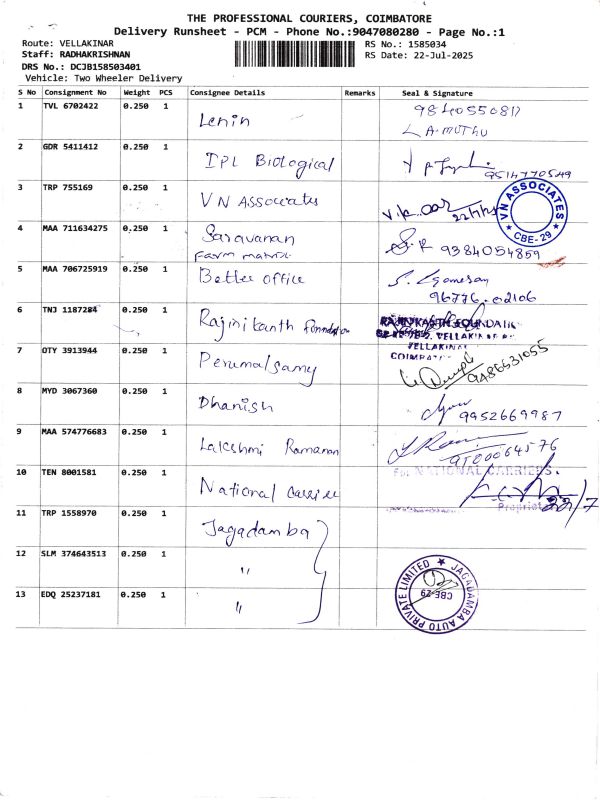 THE PROFESSIONAL COURIERS, COIMBATORE
Delivery Runsheet - PCM - Phone No.:9047080280 - Page No.:1
Route: VELLAKINAR RS No.: 1585034
Staff: RADHAKRISHNAN RS Date: 22-Jul-2025
DRS No.: DCJB158503401
Vehicle: Two Wheeler Delivery
S No Consignment No Weight PCS Consignee Details Remarks Seal & Signature
1 TVL 6702422 0.250 1 Lenin 9840550817
L A.MUTHU
2 GDR 5411412 0.250 1 IPL Biological 9514770549
3 TRP 755169 0.250 1 VN Associates
VN ASSOCIATES CBE-29
4 MAA 711634275 0.250 1 Saravanan 9384054859
Farm
5 MAA 706725919 0.250 1 Better office S. Lgamesan
96776.02106
6 TNJ 1187284 0.250 1 Rajinikanth Foundation RAJINIKANTH FOUNDATION
VELLAKINAR
COIMBAT
7 OTY 3913944 0.250 1 Perumalsamy 9486531055
8 MYD 3067360 0.250 1 Dhanish 9952669987
9 MAA 574776683 0.250 1 Lakshmi Ramanan
10 TEN 8001581 0.250 1 National Carrier For NATIONAL CARRIERS.
Proprietor
11 TRP 1558970 0.250 1 Jagadamba
12 SLM 374643513 0.250 1 "
13 EDQ 25237181 0.250 1 "
JAGADAMBA AUTO PRIVATE LIMITED CBE-29